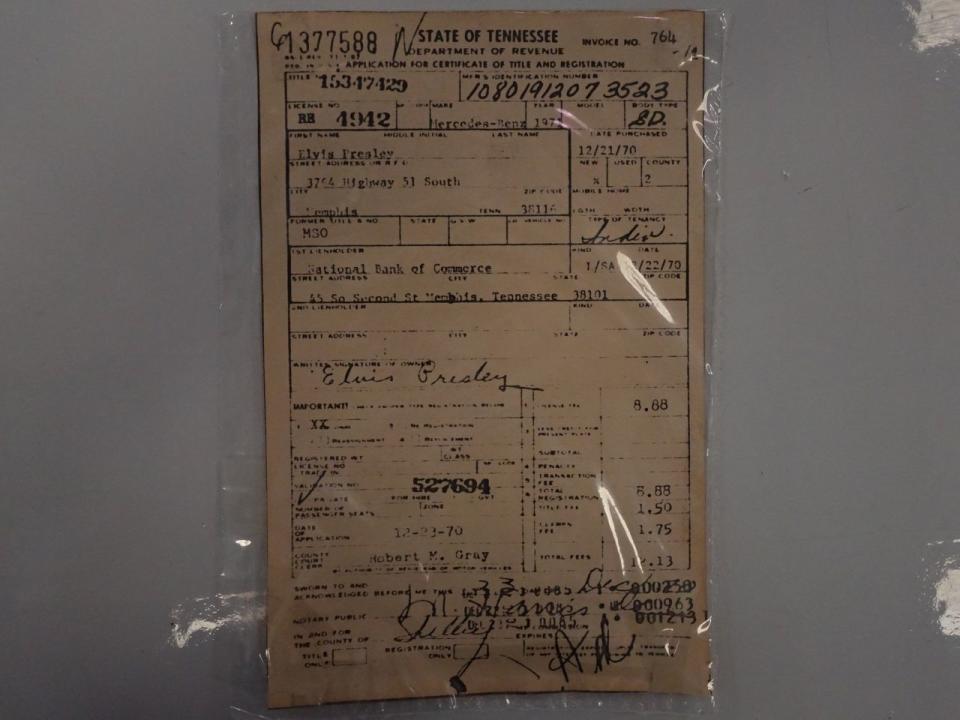 G1377588 N STATE OF TENNESSEE INVOICE NO. 764
DEPARTMENT OF REVENUE
APPLICATION FOR CERTIFICATE OF TITLE AND REGISTRATION
TITLE 15347429 MFR'S IDENTIFICATION NUMBER 10801912073523
LICENSE NO MAKE YEAR MODEL BODY TYPE
4942 Mercedes-Benz 1971 SD.
FIRST NAME MIDDLE INITIAL LAST NAME DATE PURCHASED
Elvis Presley 12/21/70
STREET ADDRESS OR R F D NEW USED COUNTY
3764 Highway 51 South x 2
CITY ZIP CODE MOBILE HOME
Memphis TENN 38116 LGTH WDTH
FORMER TITLE & NO STATE TYPE OF TENANCY
MSO
1ST LIENHOLDER KIND DATE
National Bank of Commerce /22/70
STREET ADDRESS CITY STATE ZIP CODE
45 So Second St Memphis, Tennessee 38101
2ND LIENHOLDER KIND
STREET ADDRESS CITY STATE ZIP CODE
WRITTEN SIGNATURE OF OWNER
Elvis Presley
IMPORTANT! 1 LICENSE FEE 8.88
XX NO REGISTRATION
REASSIGNMENT 4
REGISTERED WT WT CLASS SUBTOTAL
LICENSE NO TRADE IN 4 PENALTY
VALIDATION NO 527694 TRANSACTION FEE
PRIVATE FOR HIRE GVT TOTAL REGISTRATION 8.88
NUMBER OF PASSENGER SEATS ZONE TITLE FEE 1.50
DATE OF APPLICATION 12-23-70 CLERKS FEE 1.75
COUNTY COURT CLERK Robert M. Gray TOTAL FEES 12.13
SWORN TO AND
ACKNOWLEDGED BEFORE ME THIS 23 Dec 000258
NOTARY PUBLIC 000963
IN AND FOR THE COUNTY OF Shelby 001213
EXPIRES
TITLE ONLY REGISTRATION ONLY